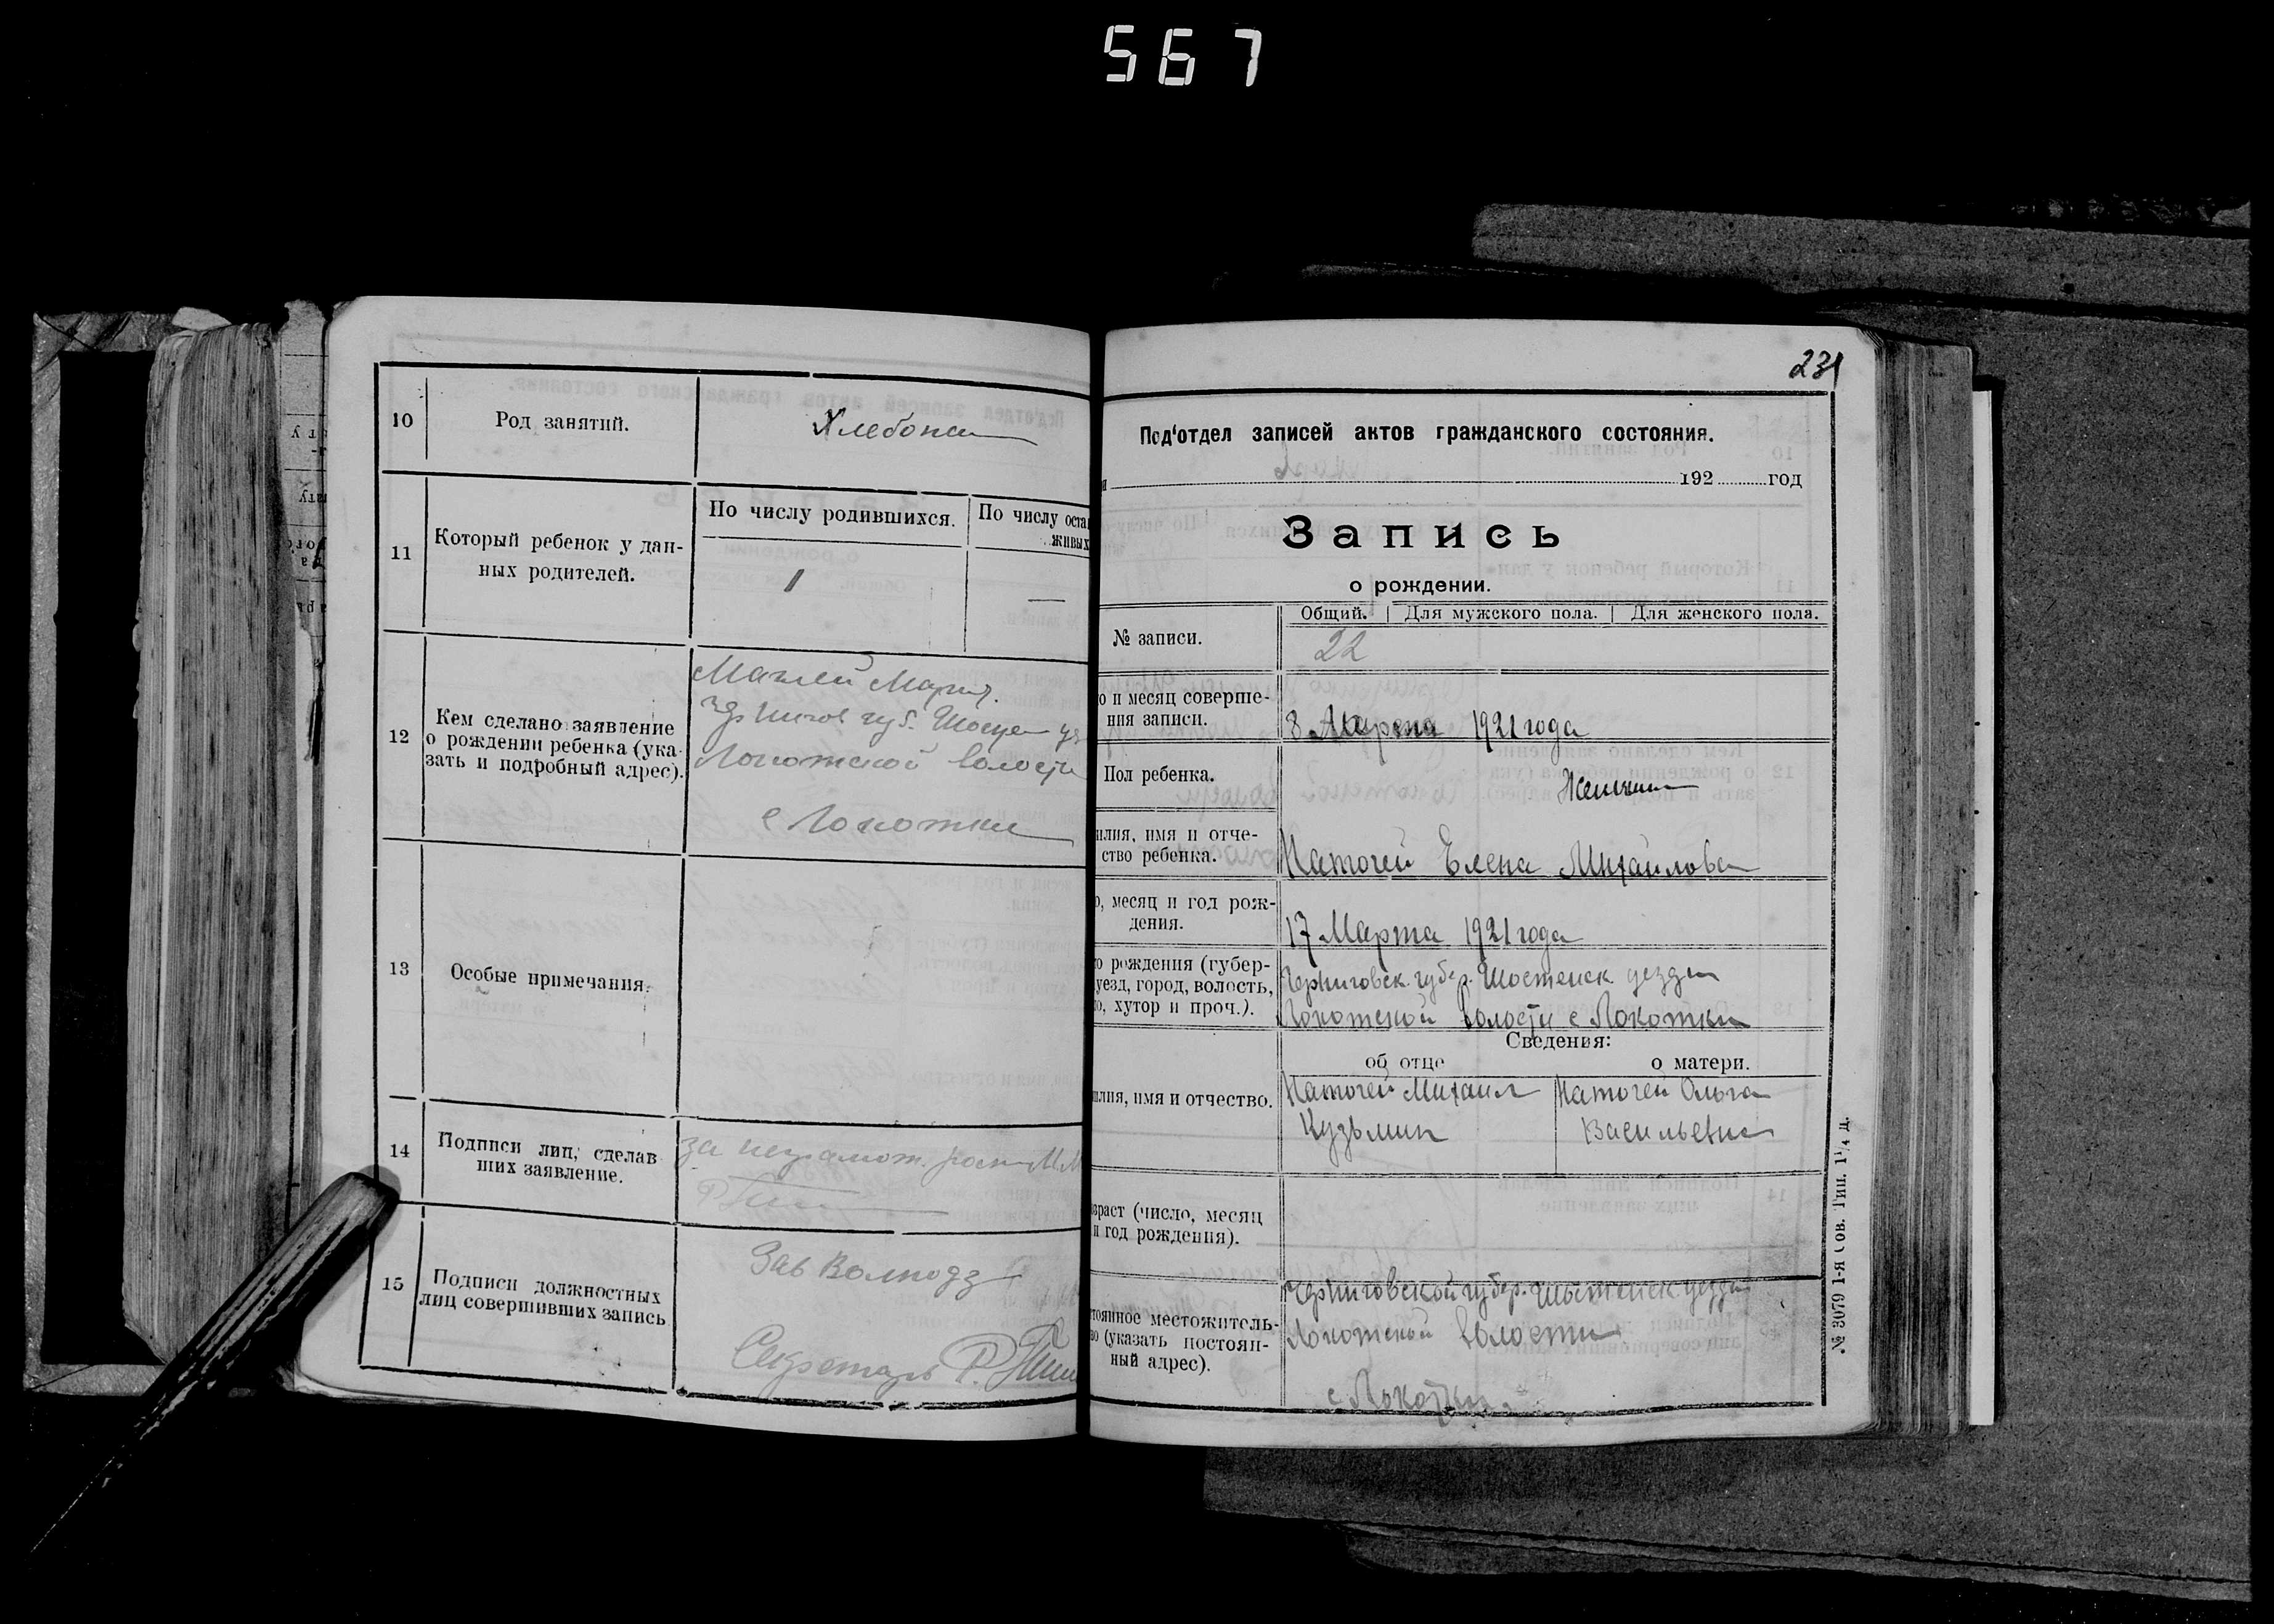 567
10 Род занятий. Хлебопа
11 Который ребенок у дан-
ных родителей.
По числу родившихся.
По числу оста
живых
1 —
12 Кем сделано заявление
о рождении ребенка (ука-
зать и подробный адрес).
Мария
Чернигов губ. Шостен уз
Локотской волости
с Локотки
13 Особые примечания.
14 Подписи лиц, сделав
ших заявление.
за неграмот.
15 Подписи должностных
лиц совершивших запись
Зав
Секретарь Р.
231
Под'отдел записей актов гражданского состояния.
и 192 год
Запись
о рождении.
№ записи.
Общий. Для мужского пола. Для женского пола.
22
о и месяц соверше-
ния записи.
8 Апреля 1921 года
Пол ребенка.
Женский
илия, имя и отче-
ство ребенка.
Каточей Елена Михайлова
о, месяц и год рож-
дения.
17 Марта 1921 года
о рождения (губер-
уезд, город, волость,
о, хутор и проч.).
Черниговск. губер. Шостенск уезда
Локотской Волости с Локотки
Сведения:
об отце о матери.
илия, имя и отчество.
Каточей Михаил Каточей Ольга
Кузьмин Васильевна
зраст (число, месяц
и год рождения).
тоянное местожитель-
во (указать постоян-
ный адрес).
Черниговской губер. Шостенск уезда
Локотской Волости
с Локотки
№ 3079 1-я Сов. Тип. 1¹/₄ д.